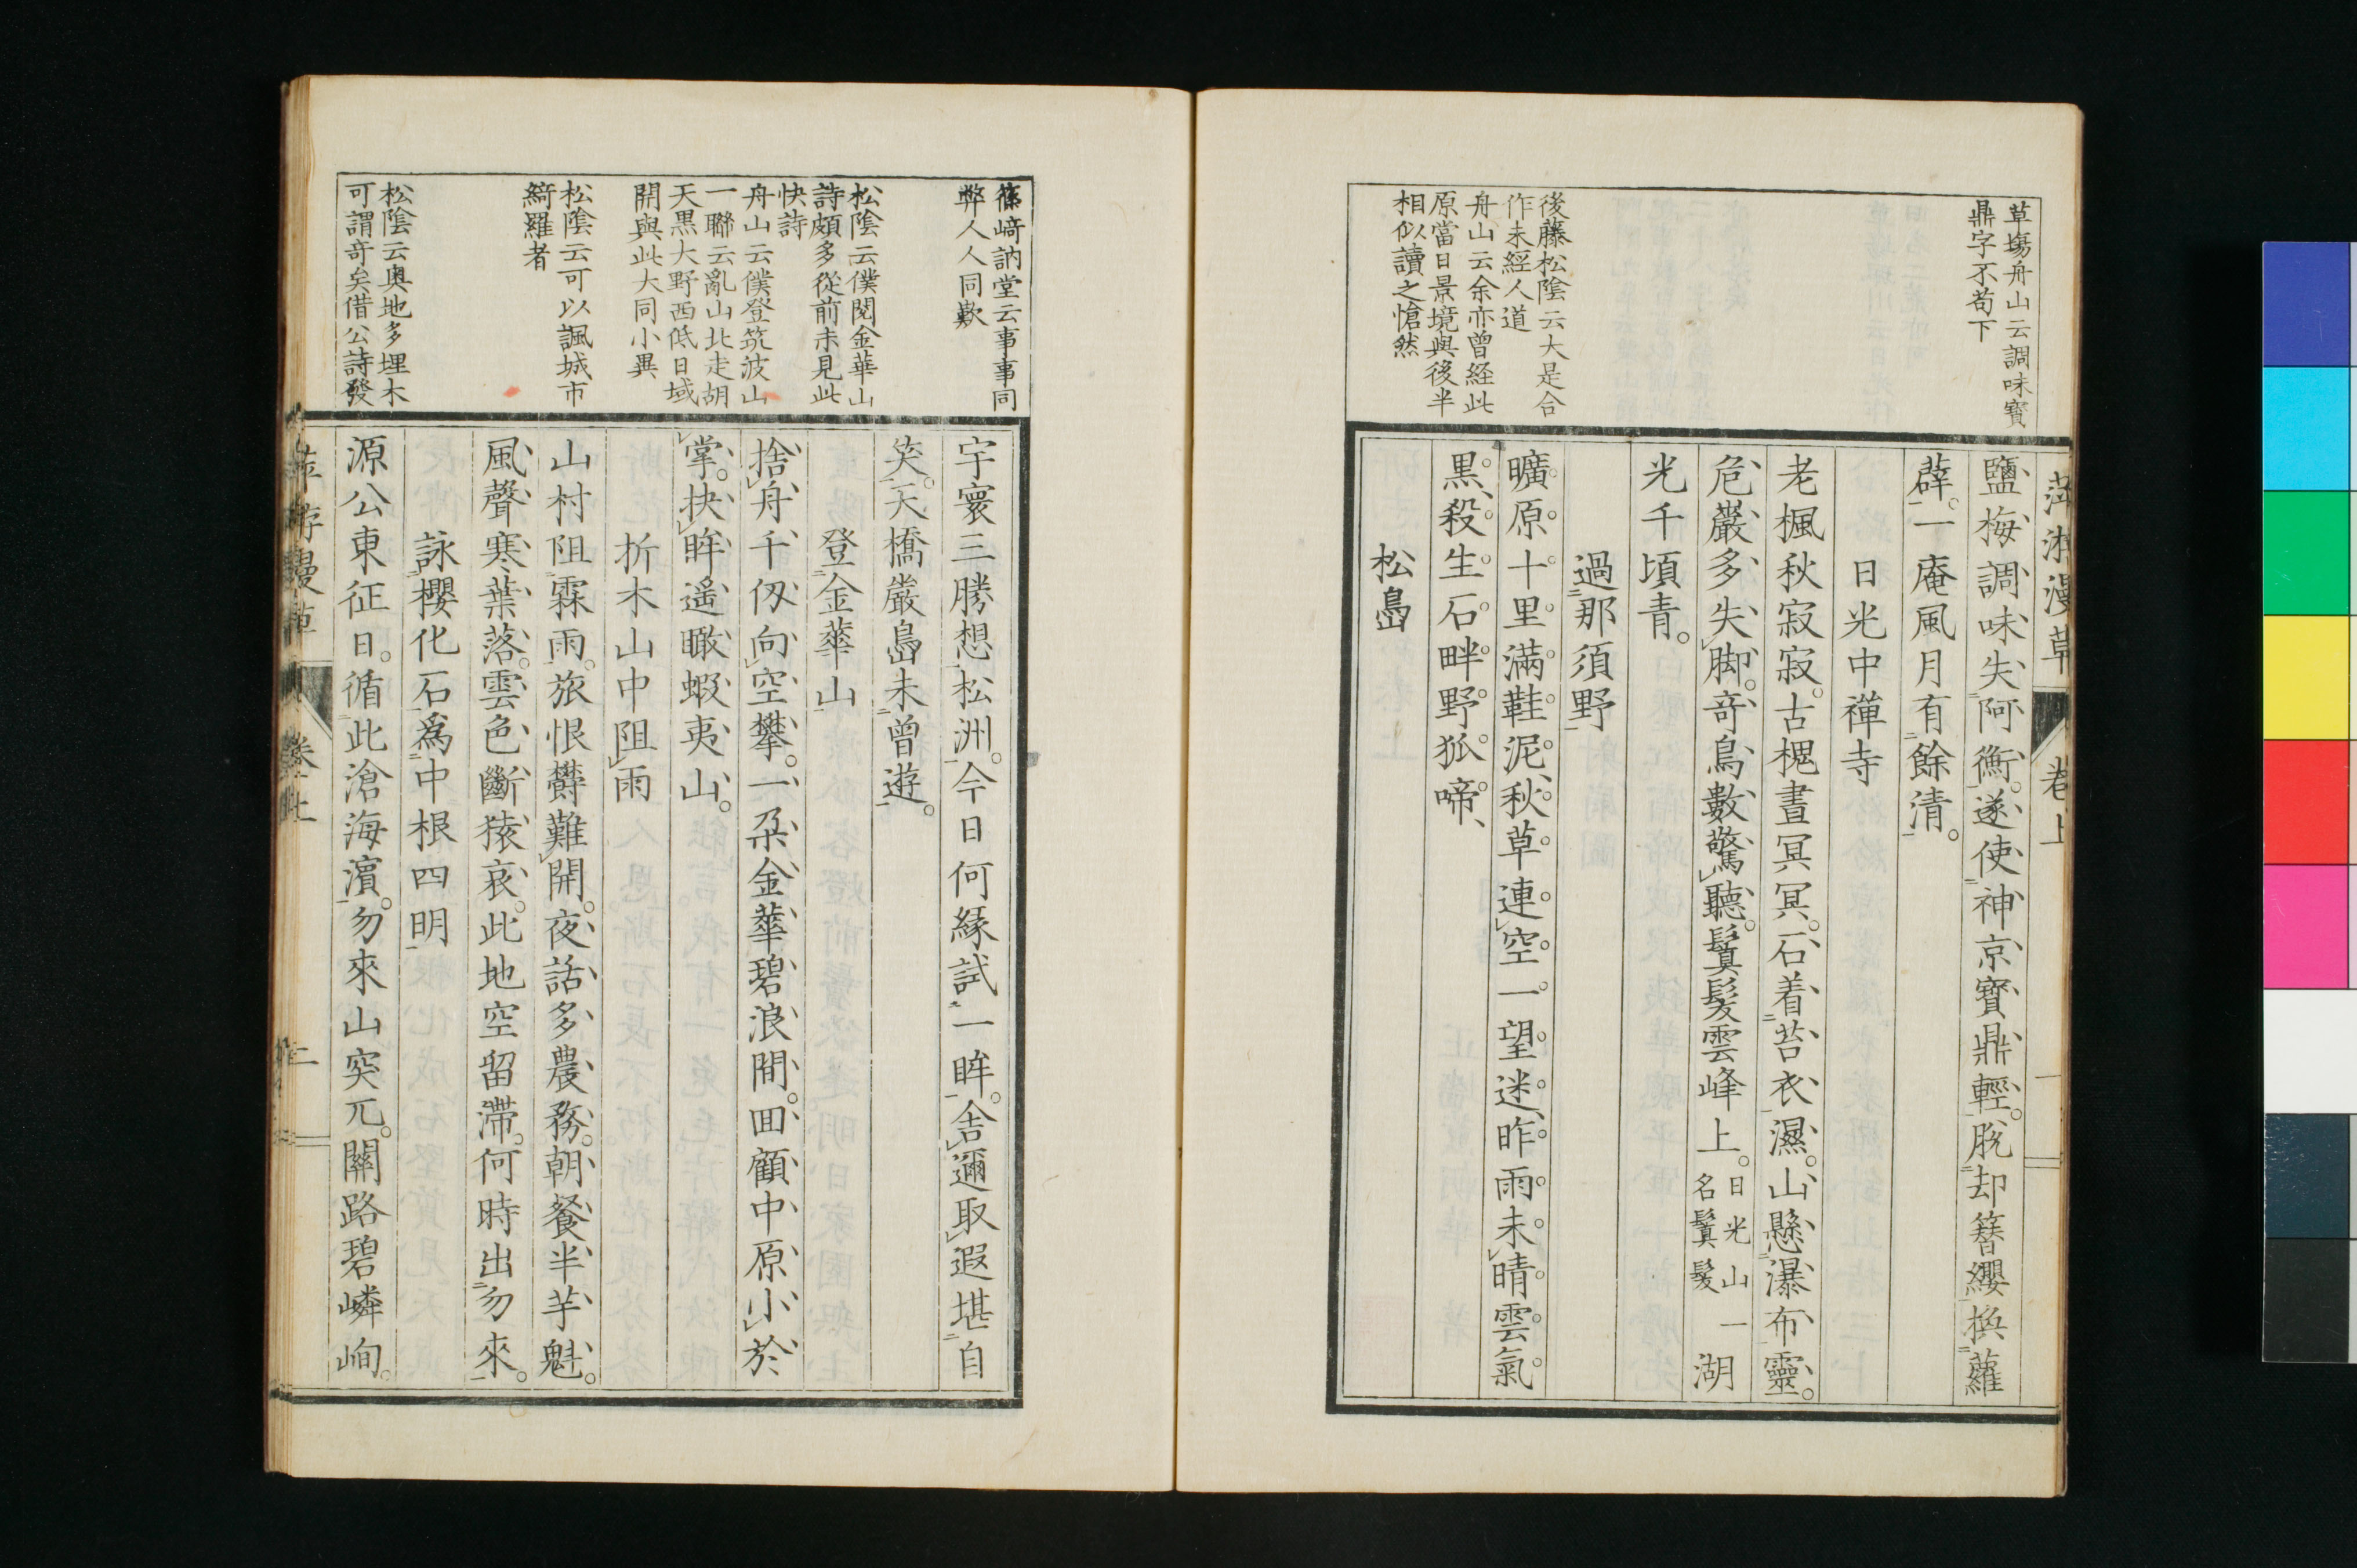 草塲舟山云調味寳
鼎字不苟下
後藤松陰云大是合
作未經人道
舟山云余亦曾経此
原當日景境與後半
相似讀之愴然
萍游漫草 卷上 一
鹽梅調味失阿衡遂使神京寳鼎輕脱却簪纓換蘿
薜一庵風月有餘清
日光中禪寺
老楓秋寂寂古槐晝冥冥石着苔衣濕山懸瀑布靈
危巖多失脚竒鳥數驚聽鬒髪雲峰上日光山一湖
名鬒髪
光千頃青
過那須野
曠原十里滿鞋泥秋草連空一望迷昨雨未晴雲氣
黒殺生石畔野狐啼
松島
篠﨑訥堂云事事同
弊人人同歎
松陰云僕閲金華山
詩頗多從前未見此
快詩
舟山云僕登筑波山
一聯云亂山北走胡
天黒大野西低日域
開與此大同小異
松陰云可以諷城市
綺羅者
松陰云奥地多埋木
可謂竒矣借公詩發
宇寰三勝想松洲今日何縁試一眸舎邇取遐堪自
笑天橋巖島未曾遊
登金華山
捨舟千仭向空攀一朶金華碧浪間囬顧中原小於
掌抉眸遥瞰蝦夷山
折木山中阻雨
山村阻霖雨旅恨欝難開夜話多農務朝餐半芋魁
風聲寒葉落雲色斷猿哀此地空留滯何時出勿來
詠櫻化石爲中根四明
源公東征日循此滄海濵勿來山突兀關路碧嶙峋
卷上 二